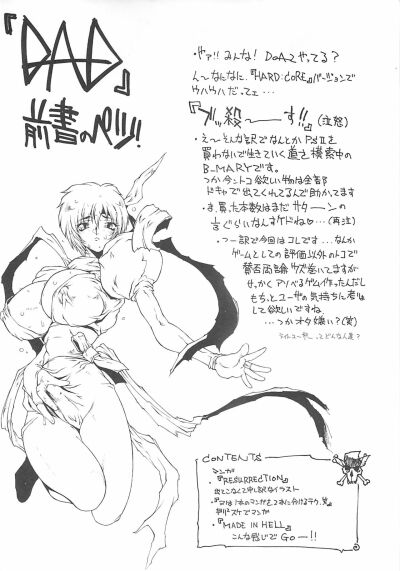 『DAD』
前書のペヅ!
・やァ!!みんな!DoA2やってる?
ん〜なになに、『HARD:CoRE』バージョンで
ウハウハだってェ…
『ブッ殺〜〜す!!』(泣怒)
・え〜そんな訳でなんとかPSⅡを
買わないで生きていく道を模索中の
B-MARYです。
つかホントコ欲しい物は全部
ドキャで出てくれてるんで助かってます
・ま、買った本数はまだサターンの
…(再泣)
・つー訳で今回はコレです……なんか
ゲームとしての評価以外のトコで
賛否両論ウズ巻いてますが
せっかくアソべるゲーム作ったんだし
もちっとユーザの気持ちに
して欲しいですね
…つかオタ嫌い?(笑)
CONTENTS
マンガ
・『RESURRECTION』
イラスト
マンガ
・『MADE IN HELL』
こんな感じでGo—!!